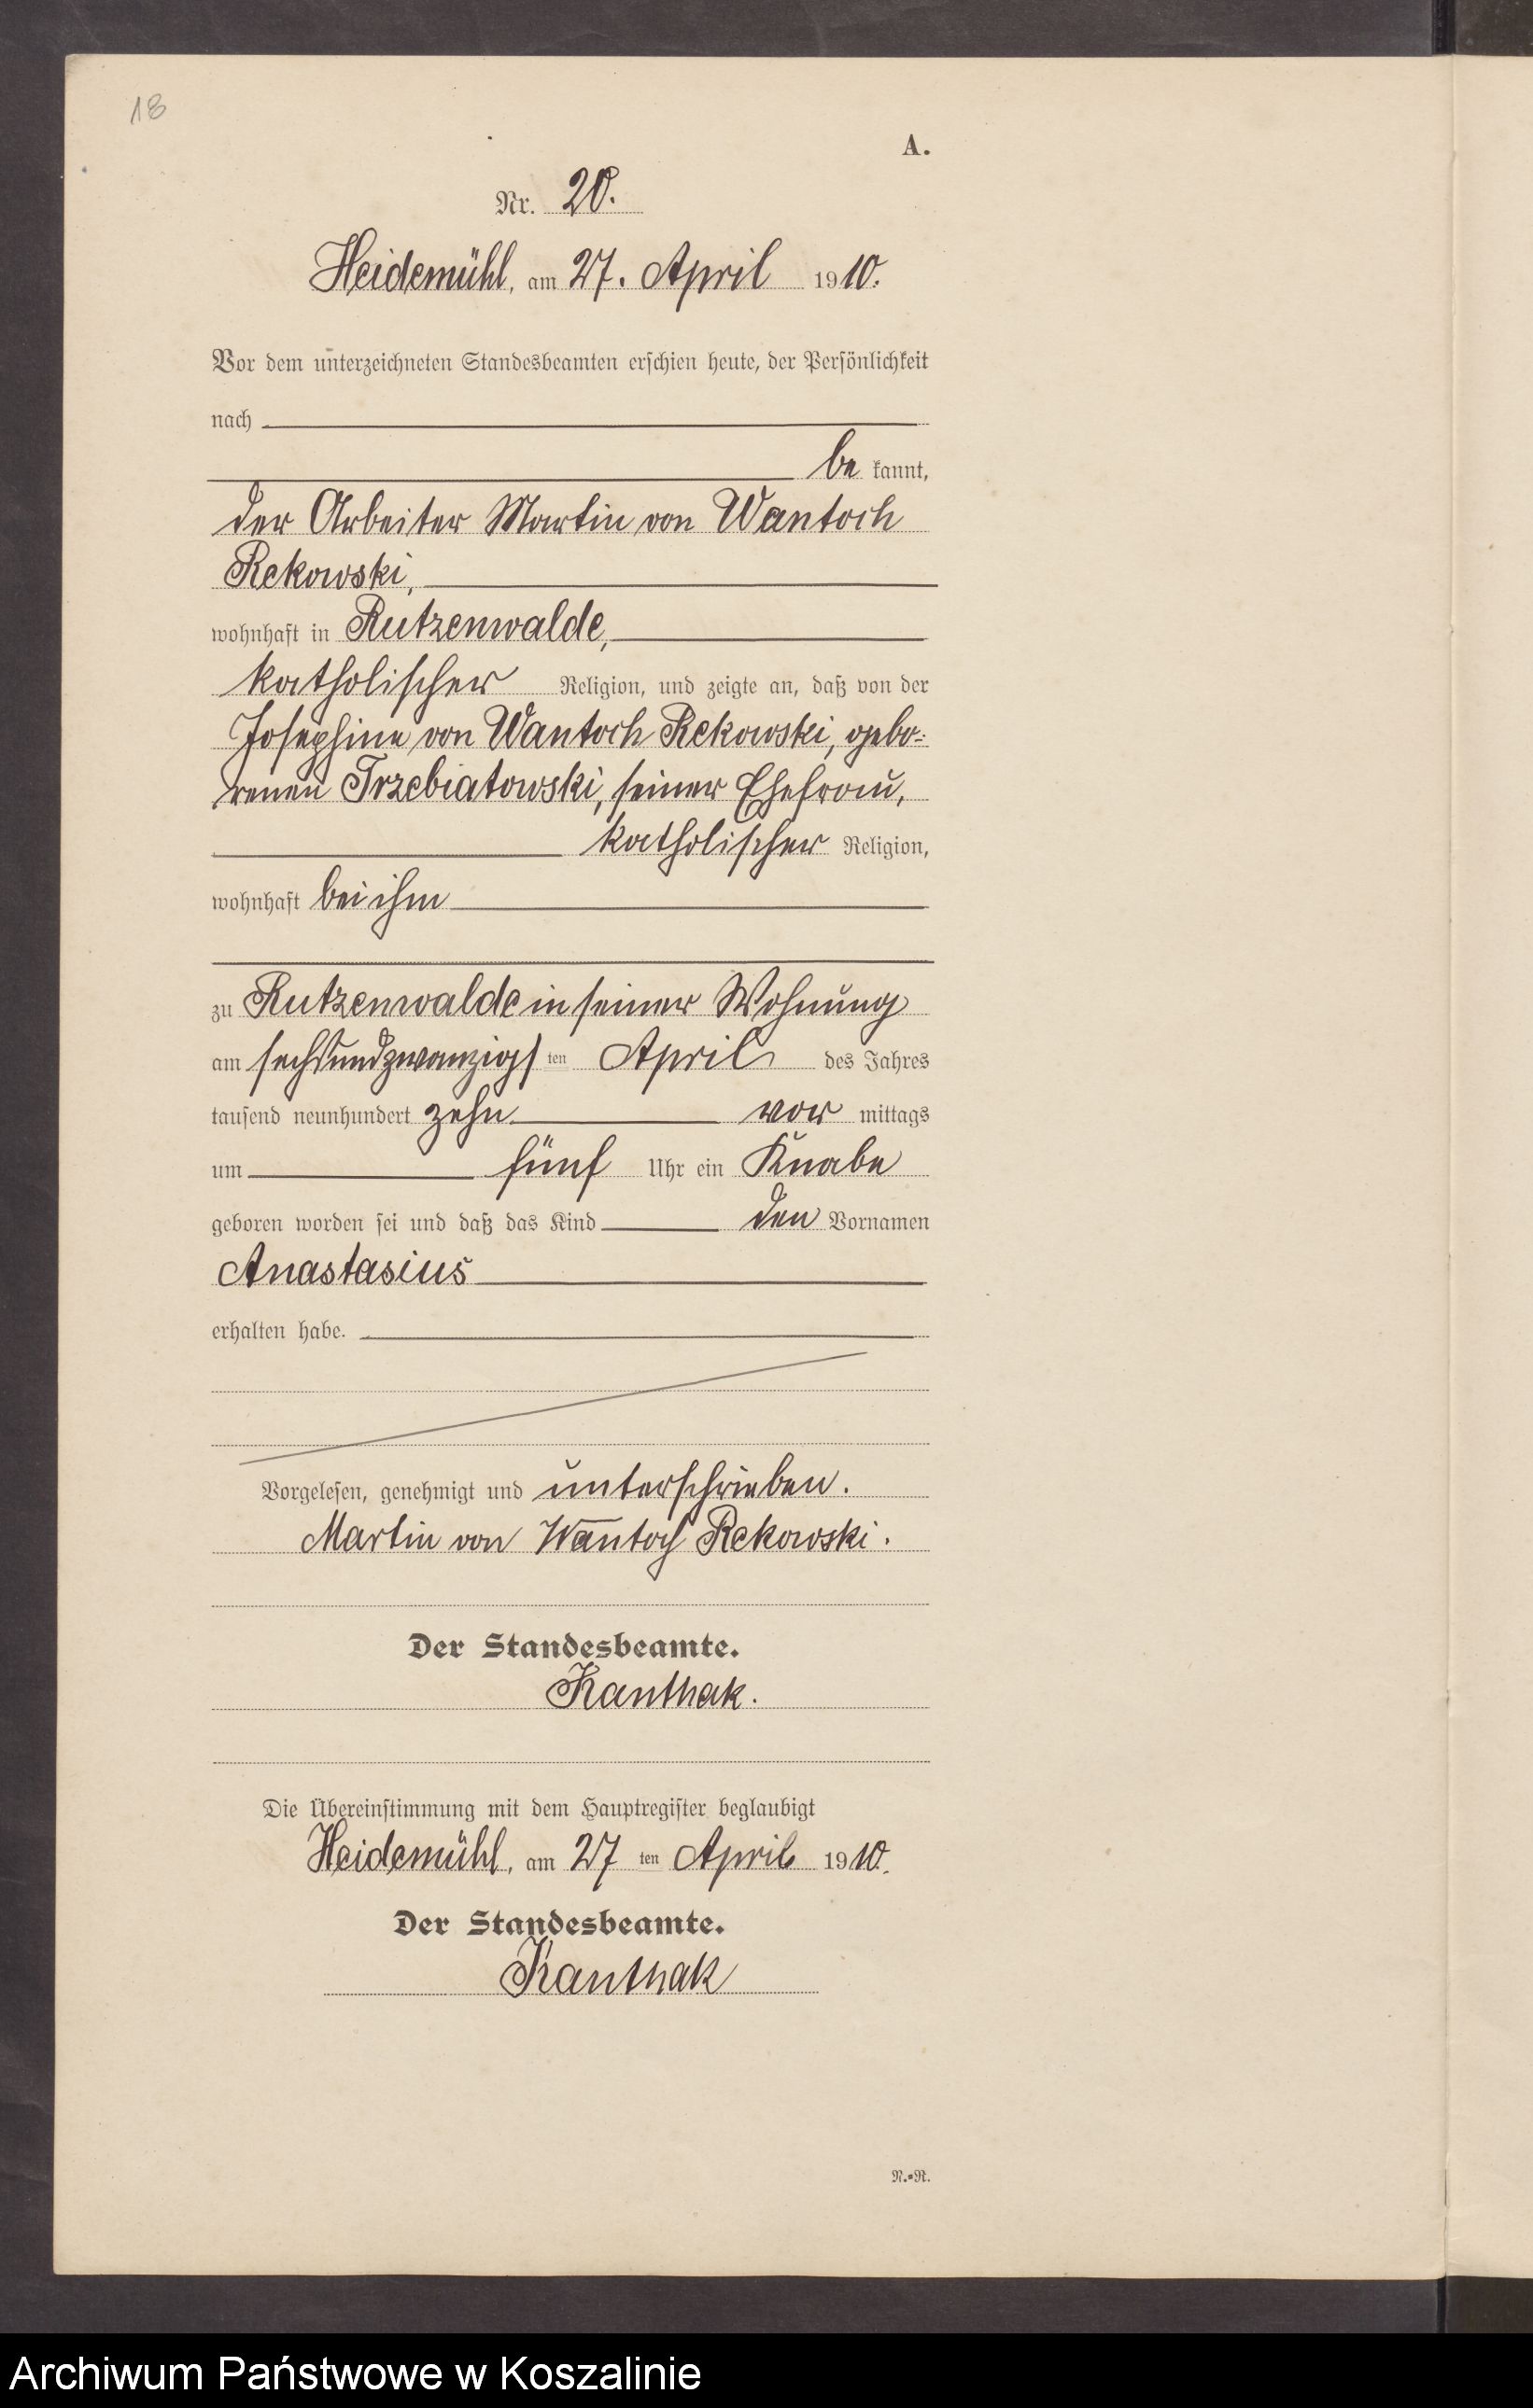 18
A.
Nr. 20.
Heidemühl, am 27. April 1910.
Vor dem unterzeichneten Standesbeamten erschien heute, der Persönlichkeit
nach
be kannt,
der Arbeiter Martin von Wantoch
Rekowski,
wohnhaft in Rutzenwalde,
katholischer Religion, und zeigte an, daß von der
Josephine von Wantoch Rekowski, gebo=
renen Trzebiatowski, seiner Ehefrau,
katholischer Religion,
wohnhaft bei ihm
zu Rutzenwalde in seiner Wohnung
am sechsundzwanzigs ten April des Jahres
tausend neunhundert zehn vor mittags
um fünf Uhr ein Knabe
geboren worden sei und daß das Kind den Vornamen
Anastasius
erhalten habe.
Vorgelesen, genehmigt und unterschrieben.
Martin von Wantoch Rekowski.
Der Standesbeamte.
Kanthak.
Die Übereinstimmung mit dem Hauptregister beglaubigt
Heidemühl, am 27 ten April 1910.
Der Standesbeamte.
Kanthak
N.=R.
Archiwum Państwowe w Koszalinie